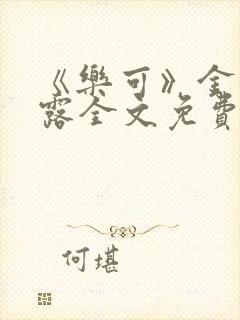 《樂可》金
露全文免費
何堪